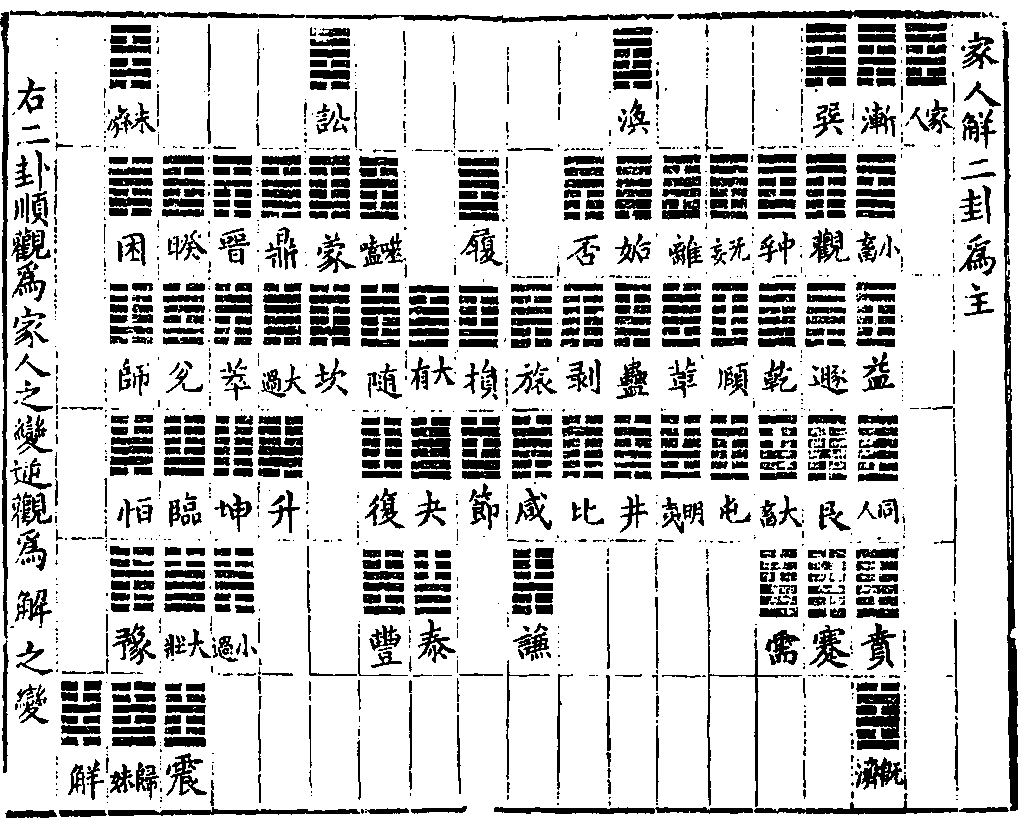 家人解二卦爲主
家人
漸
小畜
益
同人
賁
既濟
巽
觀
遯
艮
蹇
中孚
乾
大畜
需
无妄
頤
屯
離
革
明夷
渙
姤
蠱
井
否
剥
比
旅
咸
謙
履
損
節
大有
夬
泰
噬嗑
随
復
豐
訟
蒙
坎
鼎
大過
升
晉
萃
坤
小過
睽
兌
臨
大壯
震
未濟
困
師
恒
豫
歸妹
解
右二卦順觀爲家人之變逆觀爲解之變